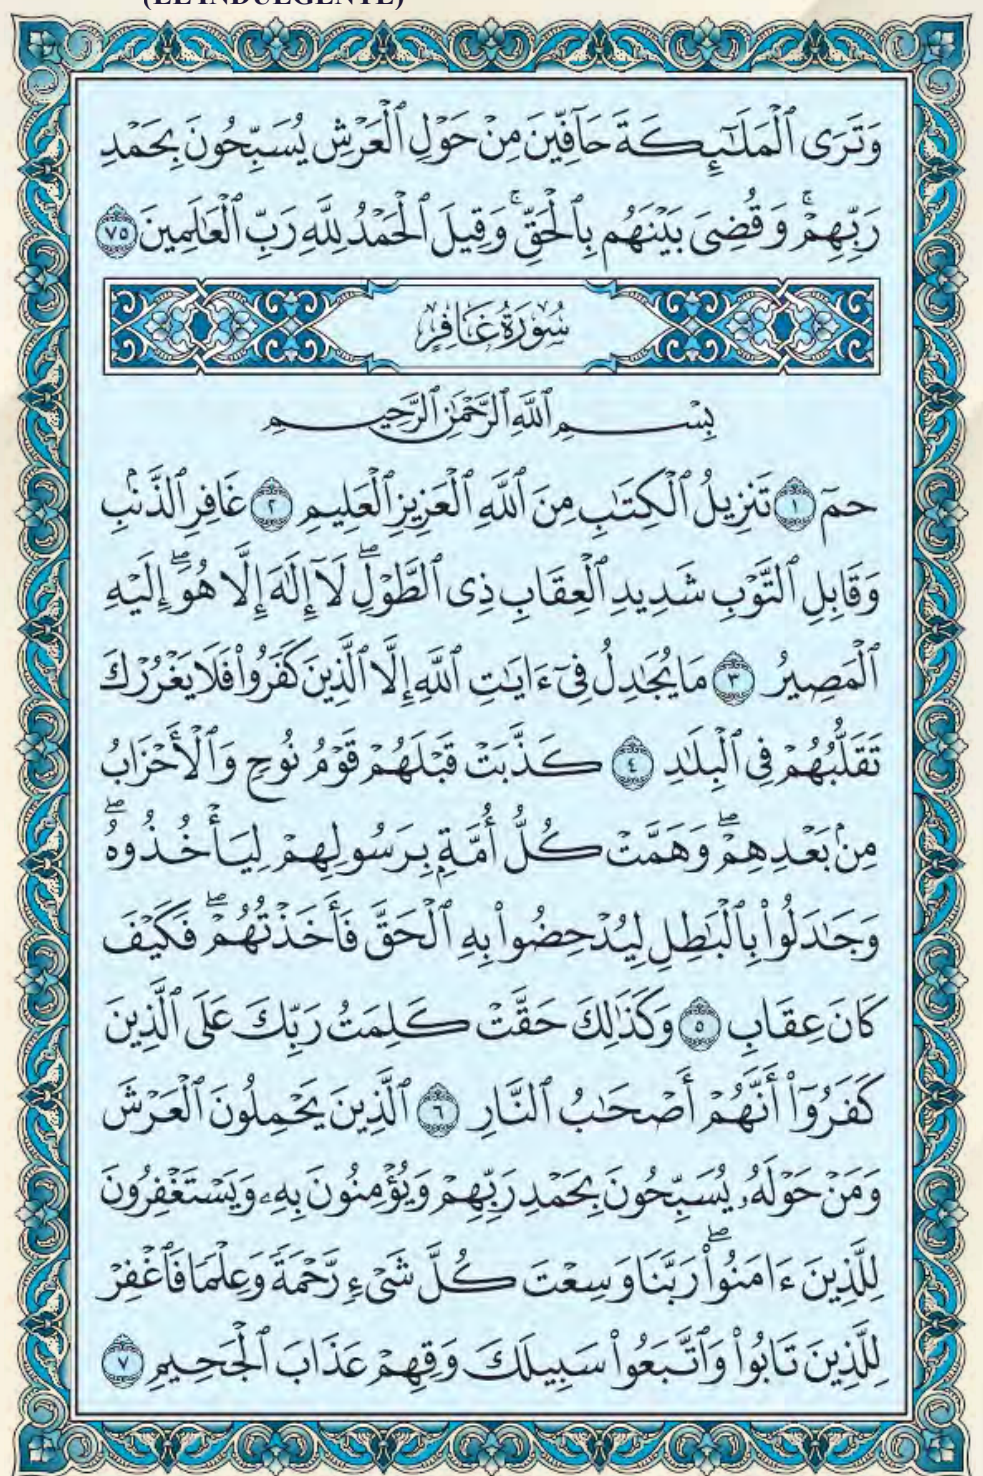 (EL INDULGENTE)
وَتَرَى ٱلْمَلَٰٓئِكَةَ حَآفِّينَ مِنْ حَوْلِ ٱلْعَرْشِ يُسَبِّحُونَ بِحَمْدِ
رَبِّهِمْ ۚ وَقُضِىَ بَيْنَهُم بِٱلْحَقِّ ۚ وَقِيلَ ٱلْحَمْدُ لِلَّهِ رَبِّ ٱلْعَٰلَمِينَ ٧٥
سُورَةُ غَافِرٍ
بِسْمِ ٱللَّهِ ٱلرَّحْمَٰنِ ٱلرَّحِيمِ
حمٓ ١ تَنزِيلُ ٱلْكِتَٰبِ مِنَ ٱللَّهِ ٱلْعَزِيزِ ٱلْعَلِيمِ ٢ غَافِرِ ٱلذَّنۢبِ
وَقَابِلِ ٱلتَّوْبِ شَدِيدِ ٱلْعِقَابِ ذِى ٱلطَّوْلِ ۖ لَآ إِلَٰهَ إِلَّا هُوَ ۖ إِلَيْهِ
ٱلْمَصِيرُ ٣ مَا يُجَٰدِلُ فِىٓ ءَايَٰتِ ٱللَّهِ إِلَّا ٱلَّذِينَ كَفَرُوا۟ فَلَا يَغْرُرْكَ
تَقَلُّبُهُمْ فِى ٱلْبِلَٰدِ ٤ كَذَّبَتْ قَبْلَهُمْ قَوْمُ نُوحٍ وَٱلْأَحْزَابُ
مِنۢ بَعْدِهِمْ ۖ وَهَمَّتْ كُلُّ أُمَّةٍۭ بِرَسُولِهِمْ لِيَأْخُذُوهُ ۖ
وَجَٰدَلُوا۟ بِٱلْبَٰطِلِ لِيُدْحِضُوا۟ بِهِ ٱلْحَقَّ فَأَخَذْتُهُمْ ۖ فَكَيْفَ
كَانَ عِقَابِ ٥ وَكَذَٰلِكَ حَقَّتْ كَلِمَتُ رَبِّكَ عَلَى ٱلَّذِينَ
كَفَرُوٓا۟ أَنَّهُمْ أَصْحَٰبُ ٱلنَّارِ ٦ ٱلَّذِينَ يَحْمِلُونَ ٱلْعَرْشَ
وَمَنْ حَوْلَهُۥ يُسَبِّحُونَ بِحَمْدِ رَبِّهِمْ وَيُؤْمِنُونَ بِهِۦ وَيَسْتَغْفِرُونَ
لِلَّذِينَ ءَامَنُوا۟ ۖ رَبَّنَا وَسِعْتَ كُلَّ شَىْءٍ رَّحْمَةً وَعِلْمًا فَٱغْفِرْ
لِلَّذِينَ تَابُوا۟ وَٱتَّبَعُوا۟ سَبِيلَكَ وَقِهِمْ عَذَابَ ٱلْجَحِيمِ ٧